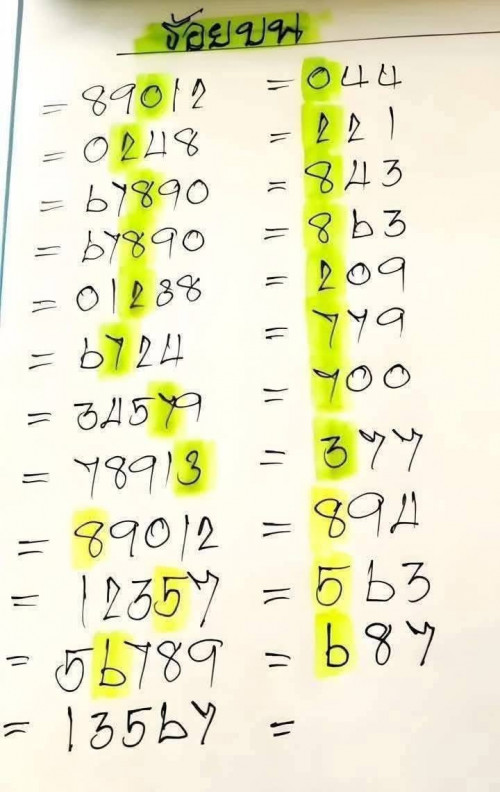 ร้อยบน
= 89012 = 044
= 0248 = 221
= 67890 = 843
= 67890 = 863
= 01238 = 209
= 6724 = 779
= 34579 = 700
= 78913 = 377
= 89012 = 894
= 12357 = 563
= 56789 = 687
= 13567 =